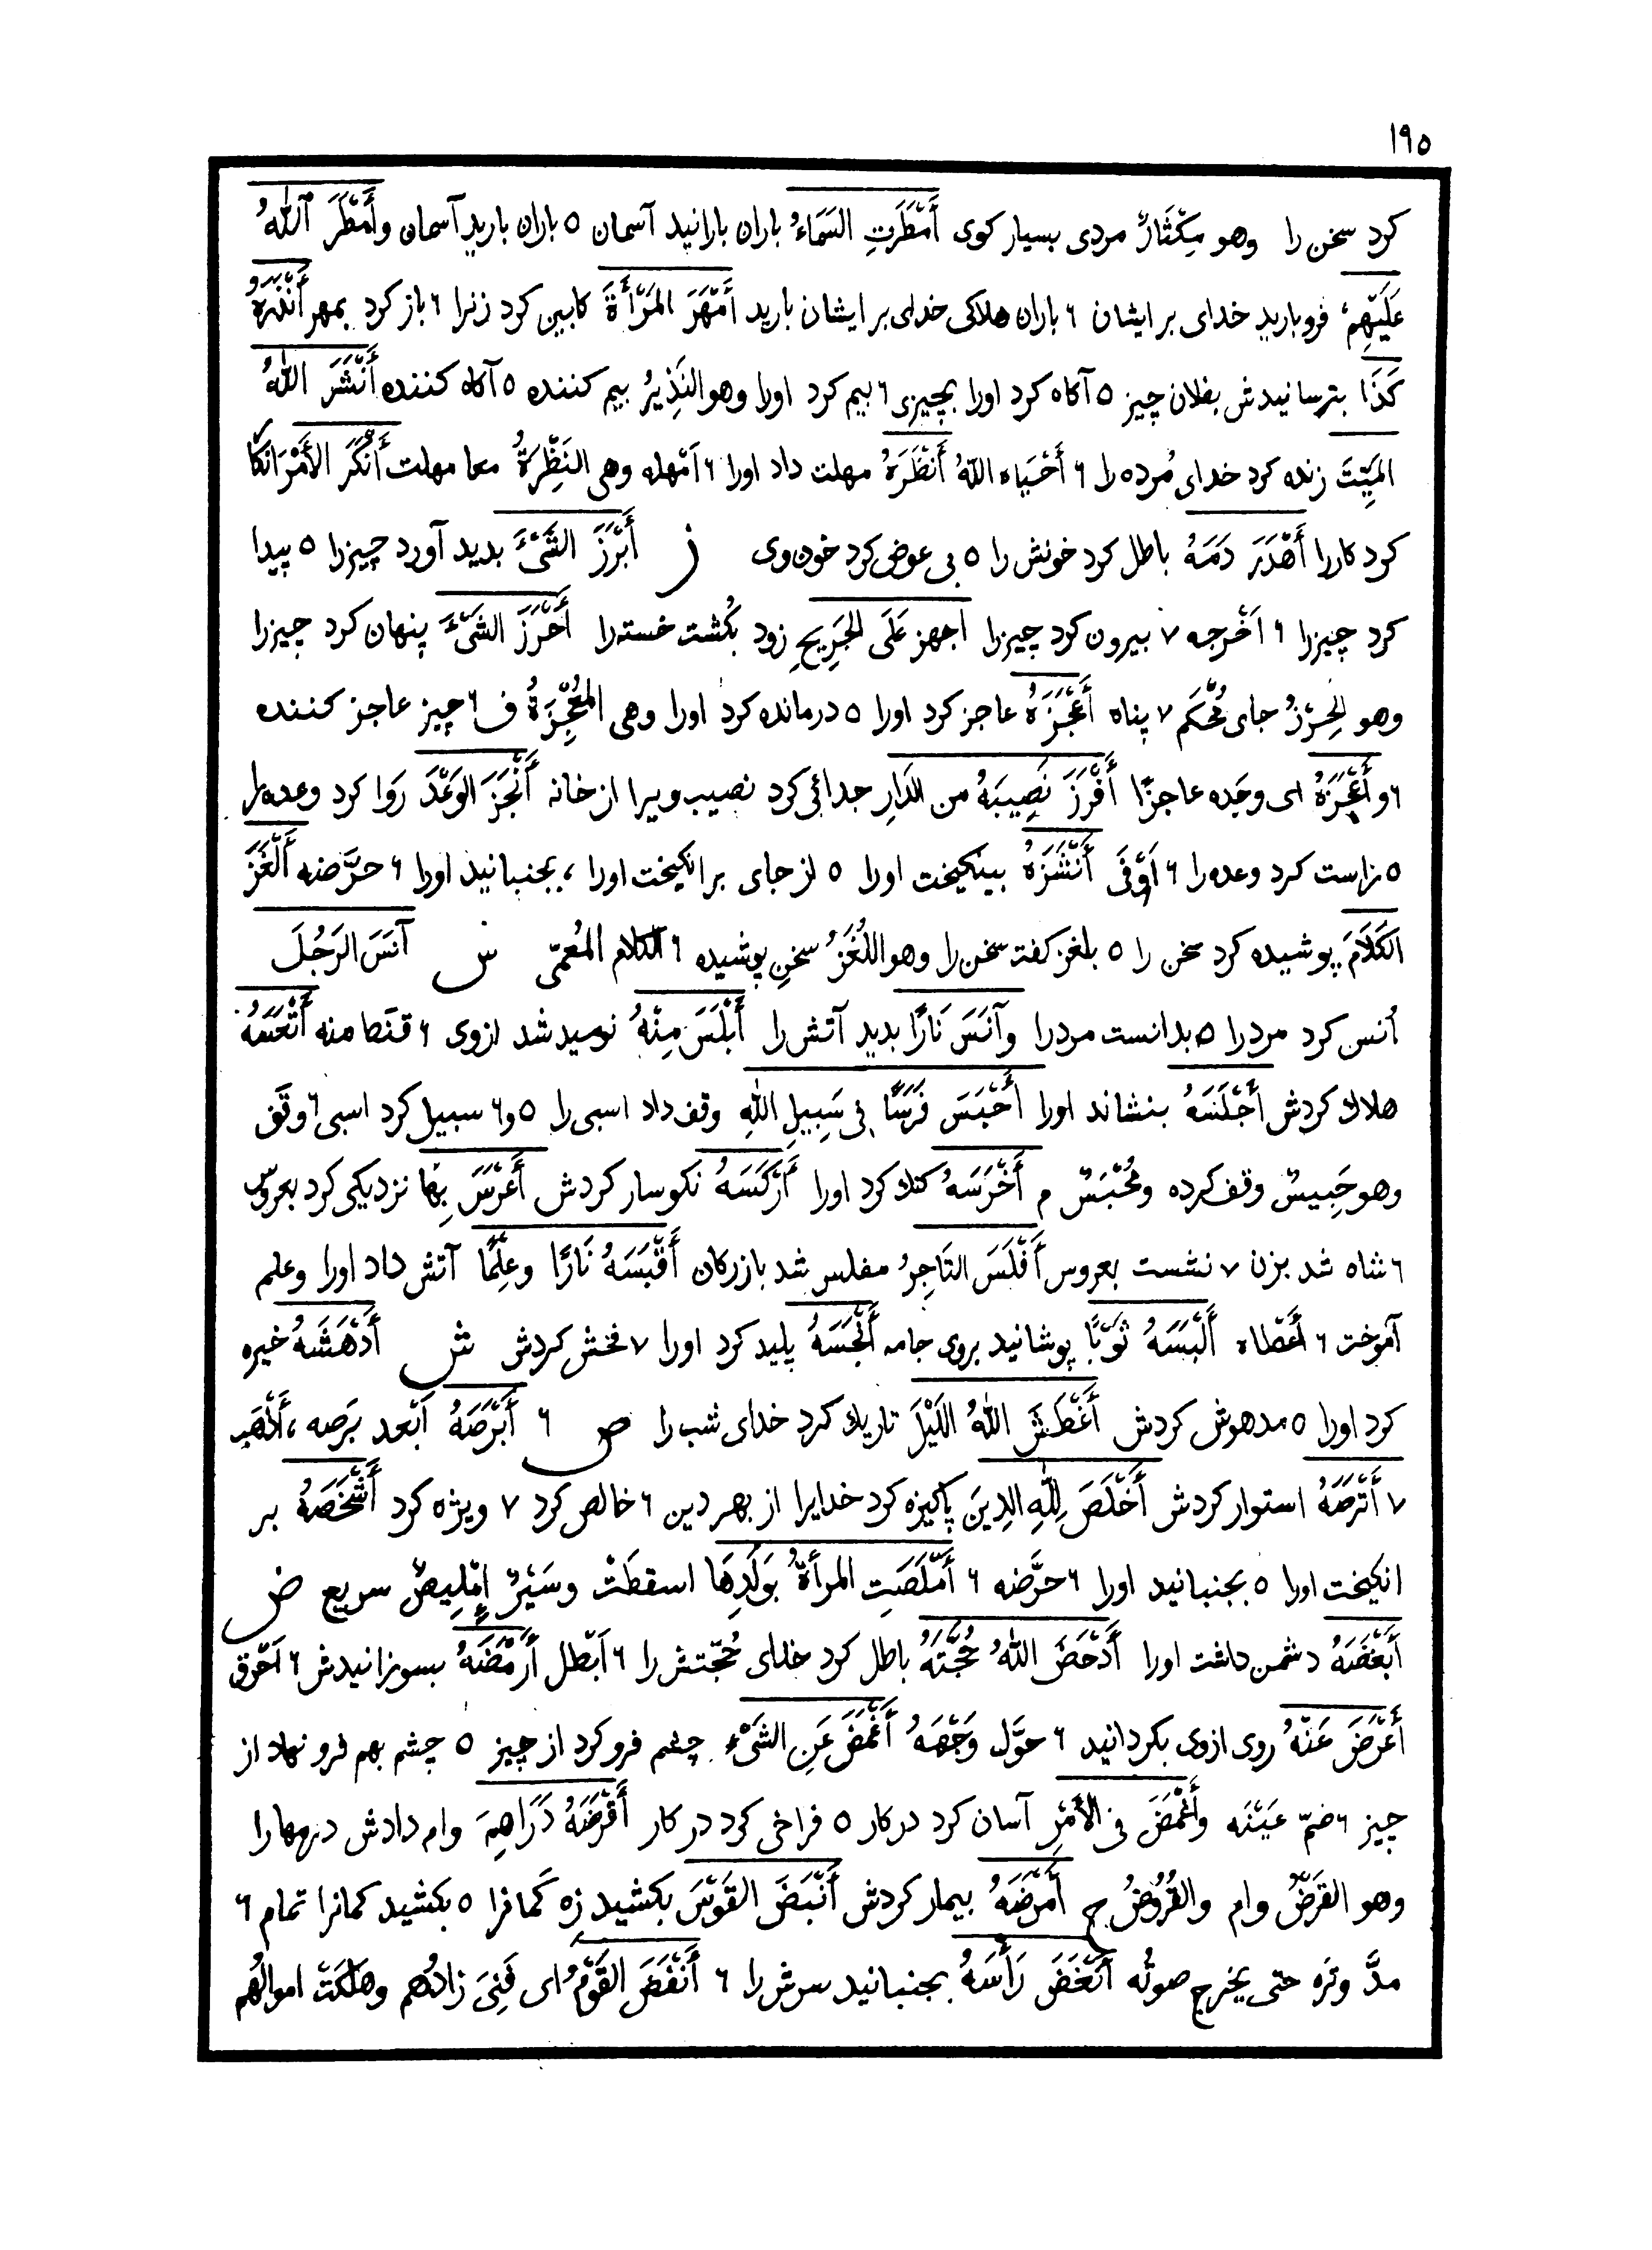 ١٩٥
کرد سخن را وهو مِكْثَارٌ مردی بسیار کوی أَمْطَرَتِ السَّمَاءُ باران بارانید آسمان ٥ باران بارید آسمان وأَمْطَرَ اللّٰهُ
عَلَيْهِمْ فرو بارید خدای بر ایشان ٦ باران هلاکی خدای بر ایشان بارید أَمْهَرَ المَرْأَةَ کابین کرد زنرا ٦ باز کرد بمهر أَنْذَرَهُ
كَذَا بترسانیدش بفلان چیز ٥ آکاه کرد اورا بچیزی ٦ بیم کرد اورا وهو النَّذِيرُ بیم کننده ٥ آکاه کننده أَنْشَرَ اللّٰهُ
المَيِّتَ زنده کرد خدای مُرده را ٦ أَحْيَاه اللّٰهُ أَنْظَرَهُ مهلت داد اورا ٦ اَمْهله وهی النَّظِرَةُ معا مهلت أَنْكَرَ الأَمْرَ انکا
کرد کاررا أَهْدَرَ دَمَهُ باطل کرد خونش را ٥ بی عوض کرد خون وی ز أَبْرَزَ الشَّيْءَ بدید آورد چیزرا ٥ پیدا
کرد چیزرا ٦ اَخْرجه ٧ بیرون کرد چیزرا اجهز عَلَى الجَرِيحِ زود بکُشت خسته را أَحْرَزَ الشَّيْءَ پنهان کرد چیزرا
وهو الحِرْزُ جای مُحْکَم ٧ پناه أَعْجَزَهُ عاجز کرد اورا ٥ درمانده کرد اورا وهی المُعْجِزَةُ ف ٦ چیز عاجز کننده
٦ و أَعْجَزَهُ ای وجَده عاجزًا أَفْرَزَ نَصِيبَهُ من الدَّارِ جدائی کرد نصیب ویرا از خانه أَنْجَزَ الوَعْدَ رَوا کرد وعده را
٥ راست کرد وعده را ٦ اَوْفَى أَنْشَزَهُ بینکیخت اورا ٥ از جای برانکیخت اورا، بجنبانید اورا ٦ حرَّضه أَلْغَزَ
الكَلَامَ پوشیده کرد سخن را ٥ بلغز کفت سخن را وهو اللُّغَزُ سخنِ پوشیده ٦ الکلام المُعمّى س آنَسَ الرَّجُلَ
اُنس کرد مردرا ٥ بدانست مردرا وآنَسَ نَارًا بدید آتش را أَبْلَسَ مِنْهُ نومید شد ازوی ٦ قنَط منه أَتْعَسَهُ
هلاك کردش أَجْلَسَهُ بنشاند اورا أَحْبَسَ فَرَسًا فِي سَبِيلِ اللّٰهِ وقف داد اسبی را ٥ و٦ سبیل کرد اسبی ٦ وقَف
وهو حَبِيسٌ وقف کرده ومُحْبَسٌ م أَخْرَسَهُ کنك کرد اورا أَرْكَسَهُ نکوسار کردش أَعْرَسَ بِهَا نزدیکی کرد بعروس
٦ شاه شد بزن ٧ نشست بعروس أَفْلَسَ التَّاجِرُ مفلس شد بازرکان أَقْبَسَهُ نَارًا وعِلْمًا آتش داد اورا وعلم
آموخت ٦ أَعْطاه أَلْبَسَهُ ثَوْبًا پوشانید بروی جامه أَنْجَسَهُ پلید کرد اورا ٧ فخش کردش ش أَدْهَشَهُ خیره
کرد اورا ٥ مدهوش کردش أَغْطَشَ اللّٰهُ اللَّيْلَ تاریك کرد خدای شب را ص ٦ أَبْرَصَهُ اَبْعد بَرَصه،
٧ أَتْرَصَهُ استوار کردش أَخْلَصَ لِلّٰهِ الدِّينَ پاکیزه کرد خدایرا از بهر دین ٦ خالص کرد ٧ ویژه کرد أَشْخَصَهُ بر
انکیخت اورا ٥ بجنبانید اورا ٦ حرَّضه ٦ أَمْلَصَتِ المرأةُ بوَلَدِهَا اسقطَتْ وسَيْرٌ إِمْلِيصٌ سریع ض
أَبْغَضَهُ دشمن داشت اورا أَدْحَضَ اللّٰهُ حُجَّتَهُ باطل کرد خدای حُجّتش را ٦ اَبْطل أَرْمَضَهُ بسوزانیدش ٦ اَحْرق
أَعْرَضَ عَنْهُ روی ازوی بکردانید ٦ حوَّل وَجْهَهُ أَغْمَضَ عَنِ الشَّيْءِ چشم فرو کرد از چیز ٥ چشم بهم فرو نهاد از
چیز ٦ ضمّ عَيْنَه وأَغْمَضَ فی الأَمْرِ آسان کرد درکار ٥ فراخی کرد در کار أَقْرَضَهُ دَرَاهِمَ وام دادش درمها را
وهو القَرْضُ وام والقُرُوضُ ج أَمْرَضَهُ بیمار کردش أَنْبَضَ القَوْسَ بکشید زه کَمانرا ٥ بکشید کمانرا تمام ٦
مدَّ وتره حتی یخرج صوتُه أَنْغَضَ رَأْسَهُ بجنبانید سرش را ٦ أَنْفَضَ القَوْمُ ای فَنِيَ زادُهم وهلَكَتْ اموالُهم